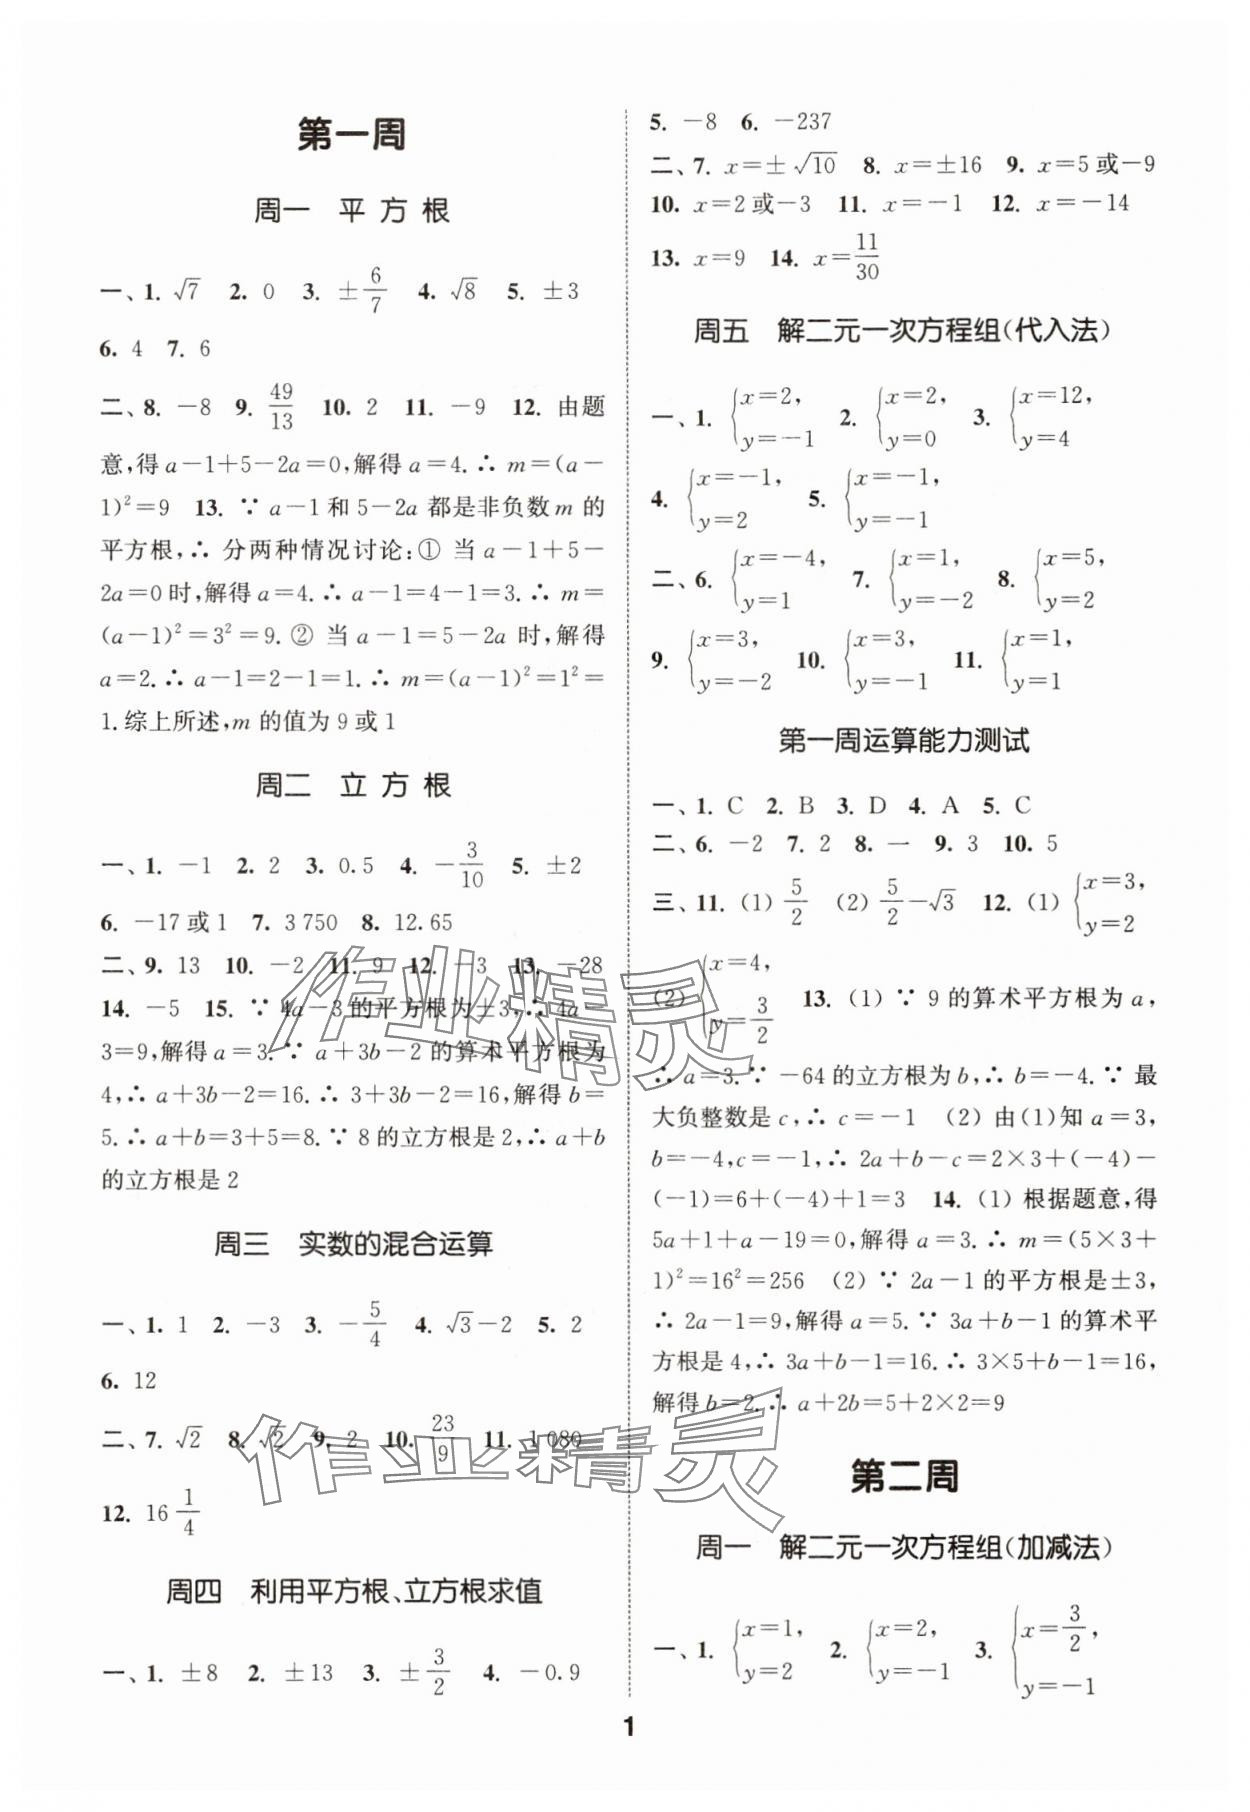 第一周
周一 平方根
一、1. √7 2. 0 3. ±6/7 4. √8 5. ±3
6. 4 7. 6
二、8. －8 9. 49/13 10. 2 11. －9 12. 由题
意,得 a－1＋5－2a＝0,解得 a＝4.∴ m＝(a－
1)²＝9 13. ∵ a－1 和 5－2a 都是非负数 m 的
平方根,∴ 分两种情况讨论:① 当 a－1＋5－
2a＝0 时,解得 a＝4.∴ a－1＝4－1＝3.∴ m＝
(a－1)²＝3²＝9.② 当 a－1＝5－2a 时,解得
a＝2.∴ a－1＝2－1＝1.∴ m＝(a－1)²＝1²＝
1.综上所述,m 的值为 9 或 1
周二 立方根
一、1. －1 2. 2 3. 0.5 4. －3/10 5. ±2
6. －17 或 1 7. 3 750 8. 12.65
二、9. 13 10. －2 11. 9 12. －3 13. －28
14. －5 15. ∵ 4a－3 的平方根为±3,∴ 4a－
3＝9,解得 a＝3.∵ a＋3b－2 的算术平方根为
4,∴ a＋3b－2＝16.∴ 3＋3b－2＝16,解得 b＝
5.∴ a＋b＝3＋5＝8.∵ 8 的立方根是 2,∴ a＋b
的立方根是 2
周三 实数的混合运算
一、1. 1 2. －3 3. －5/4 4. √3－2 5. 2
6. 12
二、7. √2 8. √2 9. 2 10. 23/9 11. 1 080
12. 16 1/4
周四 利用平方根、立方根求值
一、1. ±8 2. ±13 3. ±3/2 4. －0.9
5. －8 6. －237
二、7. x＝±√10 8. x＝±16 9. x＝5 或－9
10. x＝2 或－3 11. x＝－1 12. x＝－14
13. x＝9 14. x＝11/30
周五 解二元一次方程组(代入法)
一、1. {x＝2, y＝－1 2. {x＝2, y＝0 3. {x＝12, y＝4
4. {x＝－1, y＝2 5. {x＝－1, y＝－1
二、6. {x＝－4, y＝1 7. {x＝1, y＝－2 8. {x＝5, y＝2
9. {x＝3, y＝－2 10. {x＝3, y＝－1 11. {x＝1, y＝1
第一周运算能力测试
一、1. C 2. B 3. D 4. A 5. C
二、6. －2 7. 2 8. 一 9. 3 10. 5
三、11. (1) 5/2 (2) 5/2－√3 12. (1) {x＝3, y＝2
(2) {x＝4, y＝3/2 13. (1) ∵ 9 的算术平方根为 a,
∴ a＝3.∵ －64 的立方根为 b,∴ b＝－4.∵ 最
大负整数是 c,∴ c＝－1 (2) 由(1)知 a＝3,
b＝－4,c＝－1,∴ 2a＋b－c＝2×3＋(－4)－
(－1)＝6＋(－4)＋1＝3 14. (1) 根据题意,得
5a＋1＋a－19＝0,解得 a＝3.∴ m＝(5×3＋
1)²＝16²＝256 (2) ∵ 2a－1 的平方根是±3,
∴ 2a－1＝9,解得 a＝5.∵ 3a＋b－1 的算术平
方根是 4,∴ 3a＋b－1＝16.∴ 3×5＋b－1＝16,
解得 b＝2.∴ a＋2b＝5＋2×2＝9
第二周
周一 解二元一次方程组(加减法)
一、1. {x＝1, y＝2 2. {x＝2, y＝－1 3. {x＝3/2, y＝－1
1
作业精灵
作业精灵